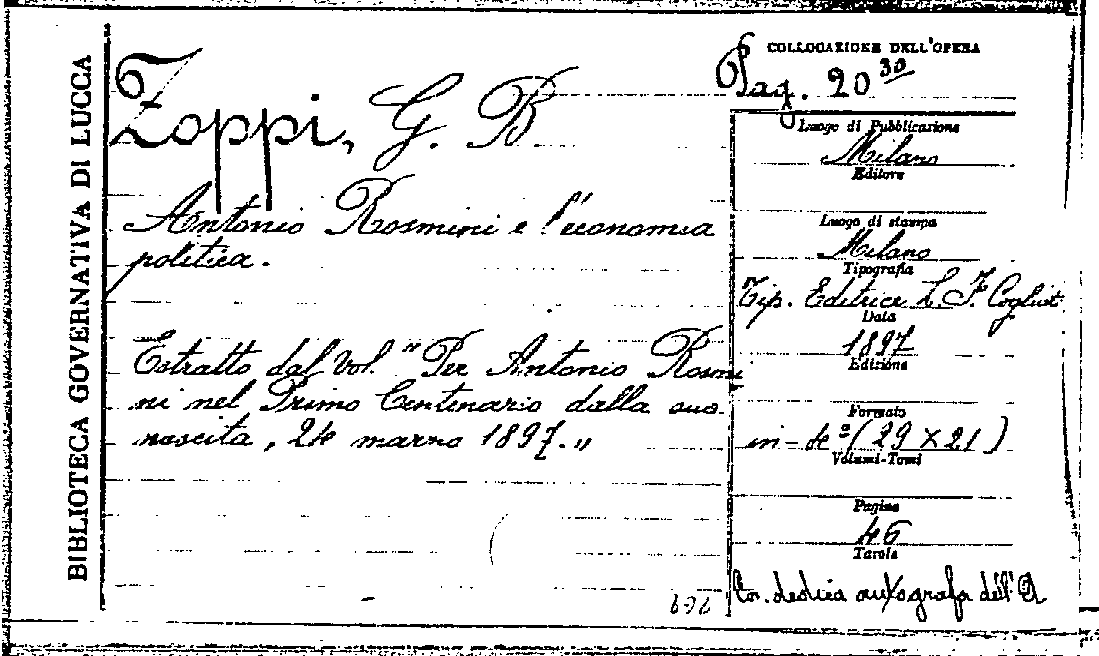 BIBLIOTECA GOVERNATIVA DI LUCCA
Zoppi, G. B.
Antonio Rosmini e l'economia
politica.
Estratto dal vol. "Per Antonio Rosmi
ni nel Primo Centenario dalla sua
nascita, 24 marzo 1897."
COLLOCAZIONE DELL'OPERA
Pag. 20 30
Luogo di Pubblicazione
Milano
Editore
Luogo di stampa
Milano
Tipografia
Tip. Editrice L. F. Cogliat
Data
1897
Edizione
Formato
in-4º (29 x 21)
Volumi-Tomi
Pagine
46
Tavole
Con dedica autografa dell'A